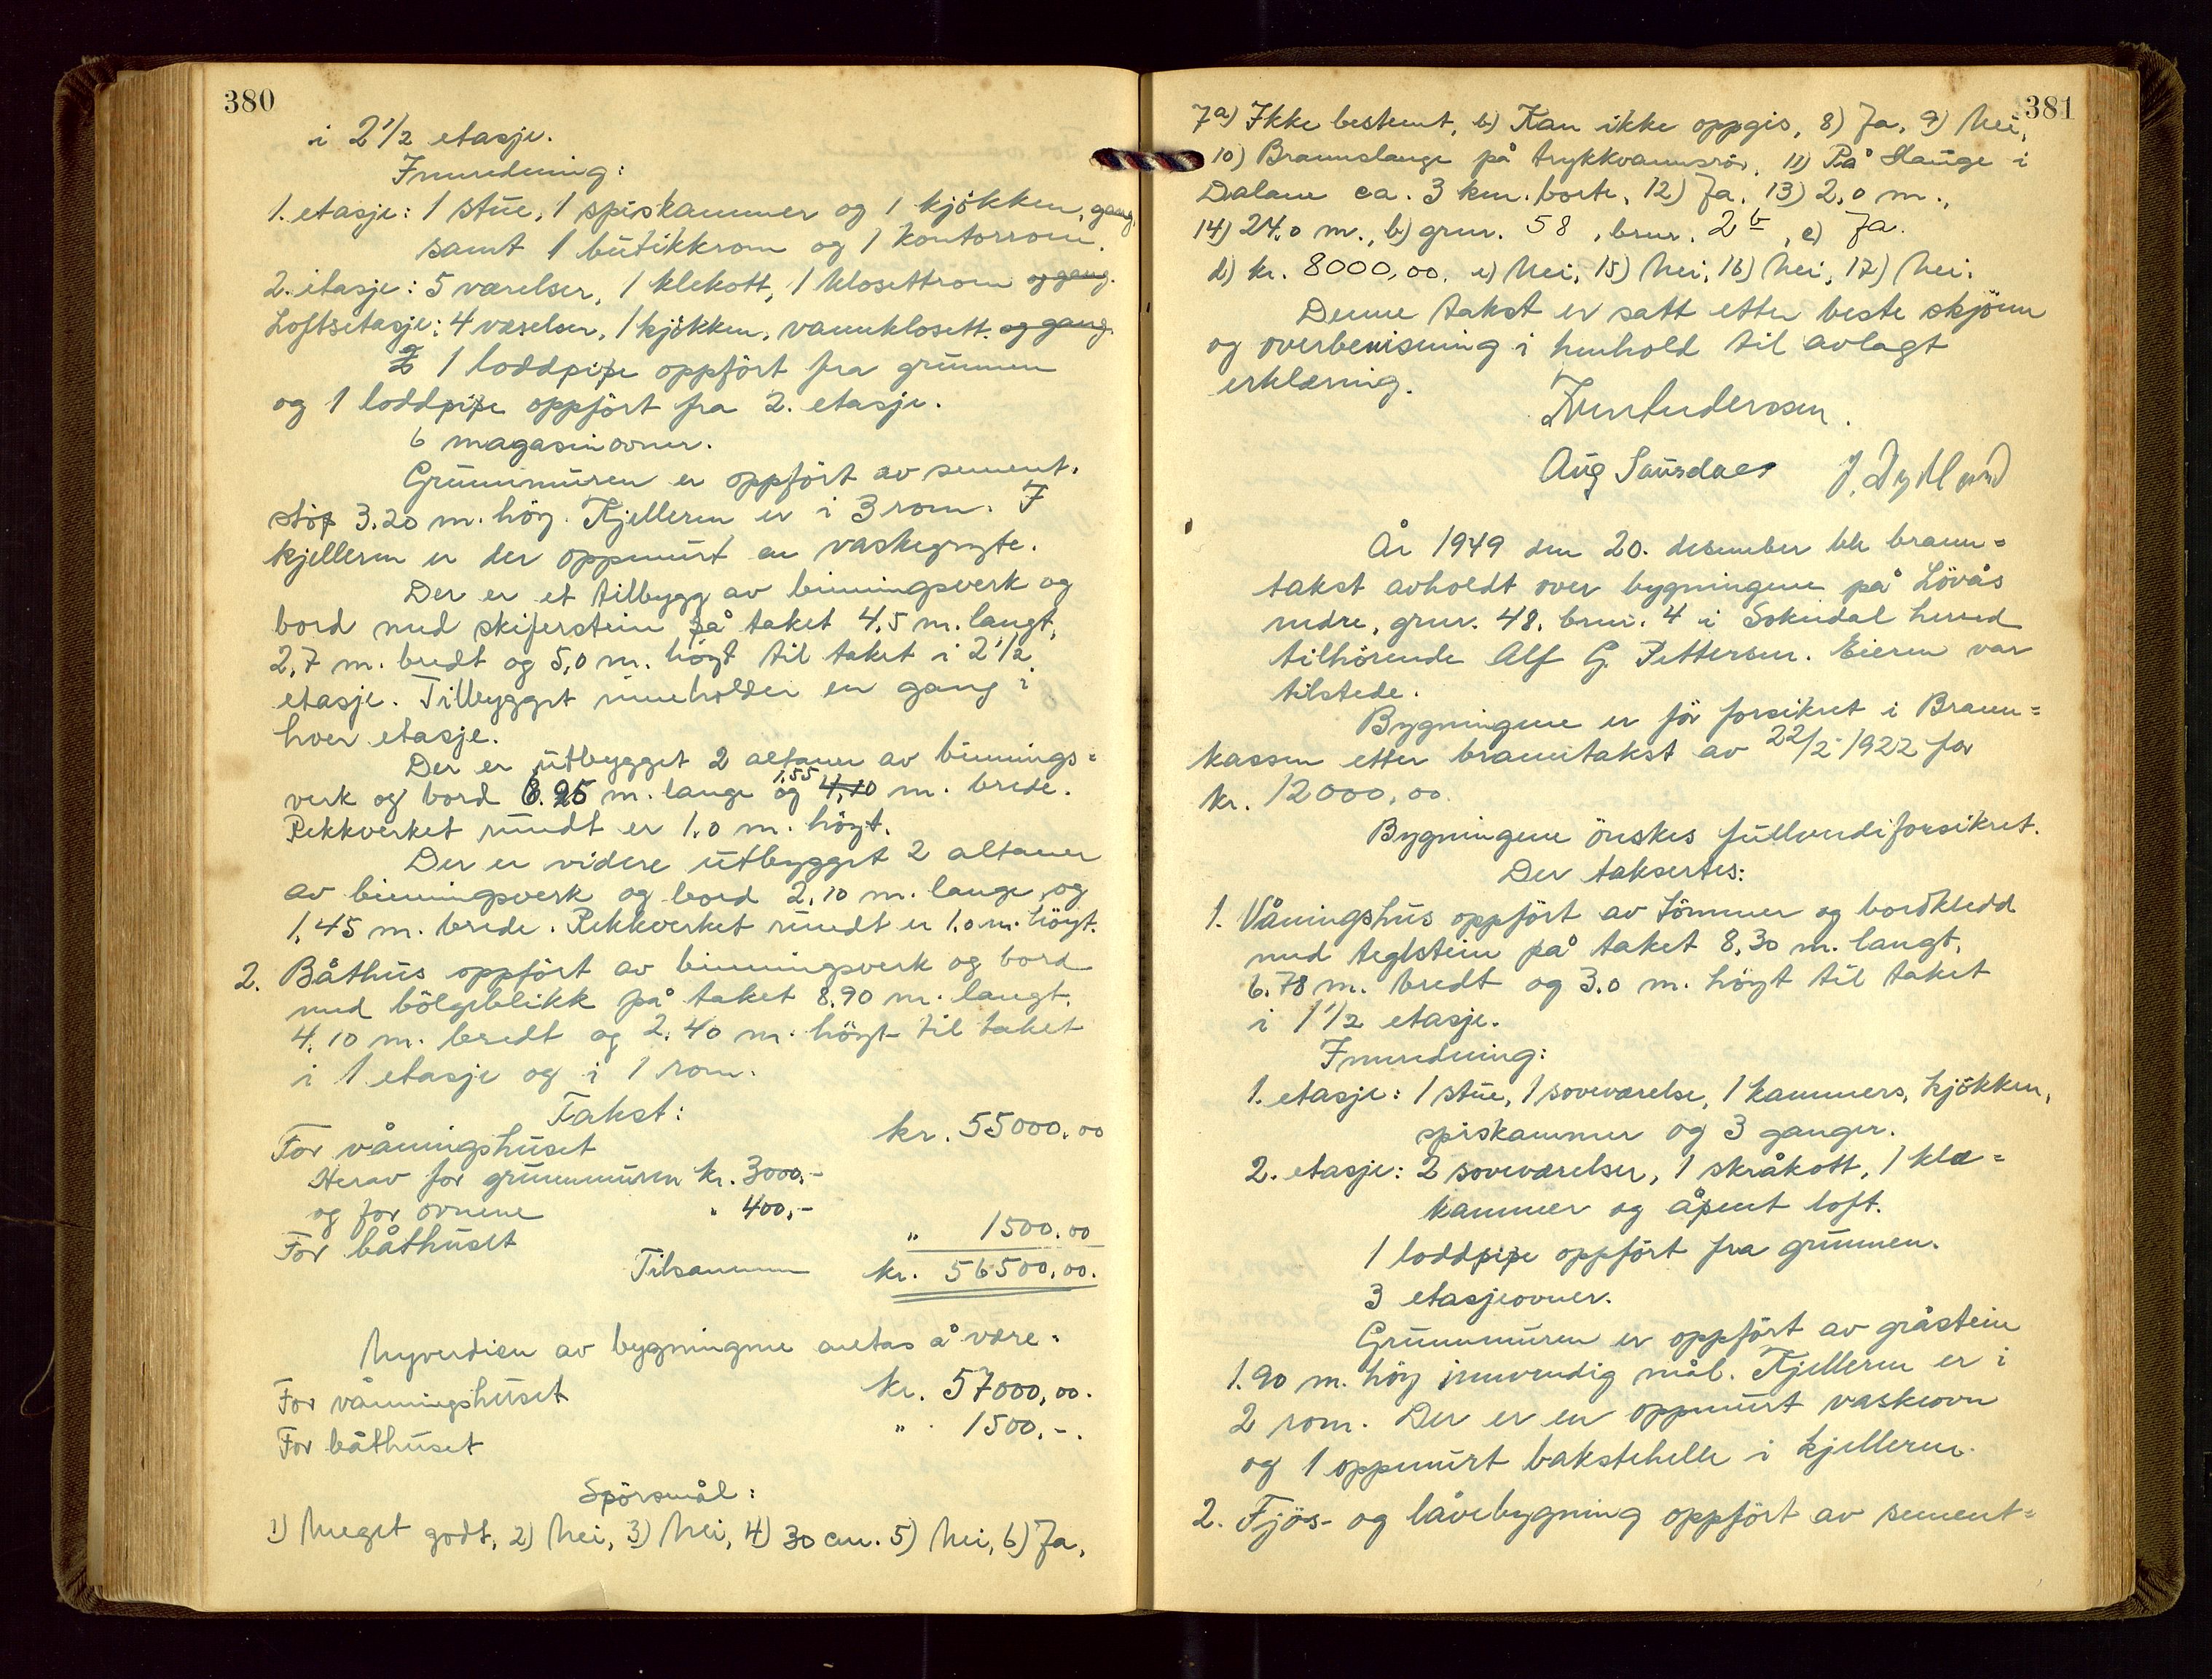 380
i 2 1/2 etasje.
Innredning:
1. etasje: 1 stue, 1 spiskammer og 1 kjökken, gang,
samt 1 butikkrom og 1 kontorrom.
2. etasje: 5 værelser, 1 klekott, 1 klosettrom og gang.
Loftsetasje: 4 værelser, 1 kjökken, vannklosett. og gang.
1 loddpipe oppfört fra grunnen
og 1 loddpipe oppfört fra 2. etasje.
6 magasinovner.
Grunnmuren er oppfört av sement.
stöp 3.20 m. höy. Kjelleren er i 3 rom. I
kjelleren er der oppmurt en vaskegryte.
Der er et tilbygg av binningsverk og
bord med skiferstein på taket 4,5 m. langt,
2,7 m. bredt og 5,0 m. höyt til taket i 2 1/2
etasje. Tilbygget inneholder en gang i
hver etasje.
Der er utbygget 2 altaner av binnings=
verk og bord 6.25 m. lange og 4,10 1,55 m. brede.
Rekkverket rundt er 1.0 m. höyt.
Der er videre utbygget 2 altaner
av binningsverk og bord 2,10 m. lange og
1,45 m. brede. Rekkverket rundt er 1.0 m. höyt.
2. Båthus oppfört av binningsverk og bord
med bölgeblikk på taket 8.90 m. langt,
4,10 m. bredt og 2,40 m. höyt til taket
i 1 etasje og i 1 rom.
Takst:
For våningshuset kr. 55000.00
Herav for grunnmuren kr. 3000,-
og for ovnene " 400,-
For båthuset " 1500.00
Tilsammen kr. 56500,00.
Nyverdien av bygningene antas å være.
For våningshuset kr. 57000,00.
For båthuset " 1500.-.
Spörsmål:
1) Meget godt, 2) Nei, 3) Nei, 4) 30 cm. 5) Nei, 6) Ja,
381
7a) Ikke bestemt, b) Kan ikke oppgis, 8) Ja, 9) Nei,
10) Brannslange på trykkvannsrör, 11) På Hauge i
Dalane ca. 3 km. borte, 12) Ja, 13) 2,0 m.,
14) 24.0 m., b) gnr. 58, bnr. 2 b, c) Ja.
d) kr. 8000,00. e) Nei, 15) Nei, 16) Nei, 17) Nei.
Denne takst er satt etter beste skjönn
og overbevisning i henhold til avlagt
erklæring.
Aug Saursdaes
År 1949 den 20. desember ble brann=
takst avholdt over bygningene på Lövås
nedre, gnr. 48. bnr. 4 i Sokndal herred
tilhörende Alf G. Pettersen. Eieren var
tilstede.
Bygningene er för forsikret i Brann=
kassen etter branntakst av 22/2 1922 for
kr. 12000,00.
Bygningene önskes fullverdiforsikret.
Der taksertes:
1. Våningshus oppfört av tömmer og bordkledd
med teglstein på taket 8,30 m. langt,
6.78 m. bredt og 3.0 m. höyt til taket
i 1 1/2 etasje.
Innredning:
1. etasje: 1 stue, 1 soveværelse, 1 kammers, kjökken,
spiskammer og 3 ganger.
2. etasje: 2 soveværelser, 1 skråkott, 1 klæ=
kammer og åpent loft.
1 loddpipe oppfört fra grunnen.
3 etasjeovner.
Grunnmuren er oppfört av gråstein
1.90 m. höy innvendig mål. Kjelleren er i
2 rom. Der er en oppmurt vaskeovn
og 1 oppmurt bakstehelle i kjelleren.
2. Fjös- og låvebygning oppfört av sement=